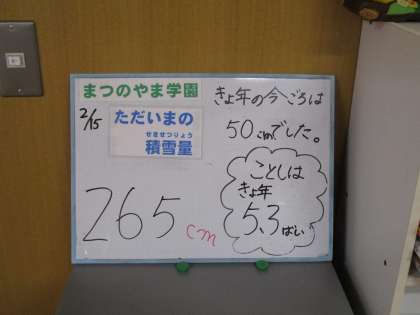 まつのやま学園
2/15
ただいまの
せきせつりょう
積雪量
265cm
きょ年の今ごろは
50cmでした。
ことしは
きょ年
5.3ばい